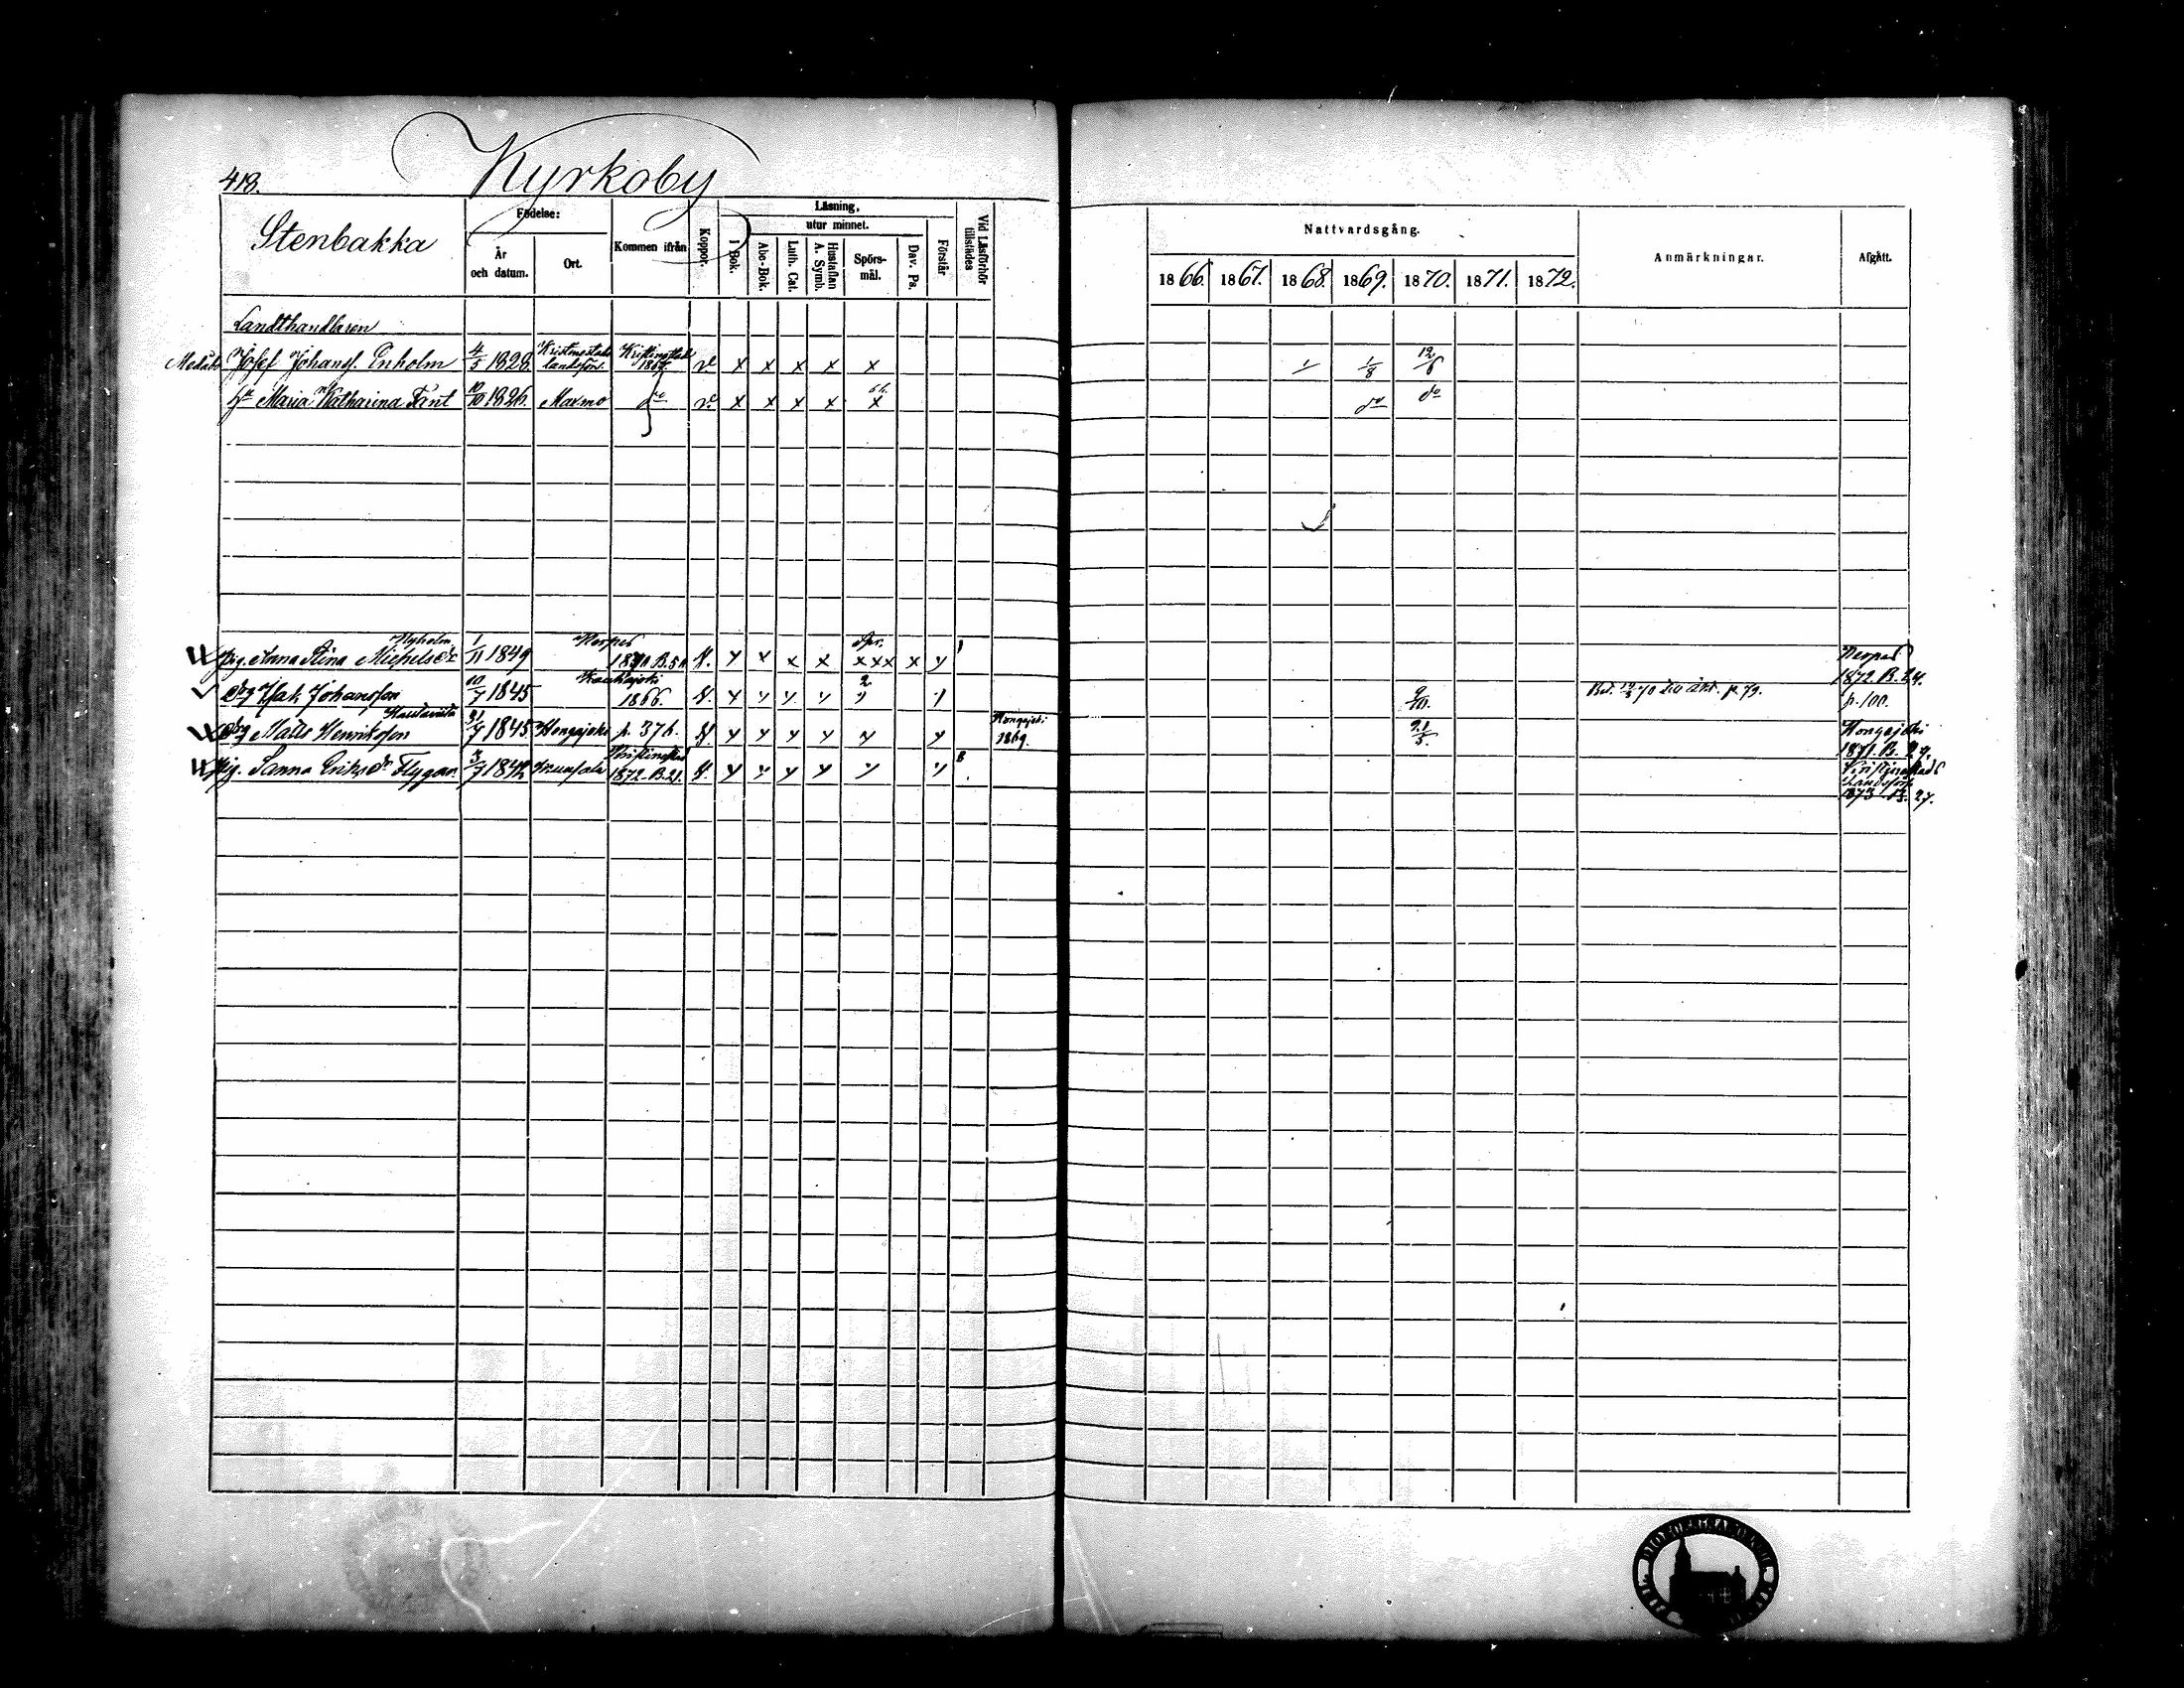 418.
Kyrkoby
Stenbakka
Födelse:
År och datum.
Ort.
Kommen ifrån
Koppor.
Läsning,
I Bok.
utur minnet.
Abc-Bok.
Luth. Cat.
Hustaflan A. Symb.
Spörsmål.
Dav. Ps.
Förstår
Vid Läsförhör tillstädes
Nattvardsgång.
1866. 1867. 1868. 1869. 1870. 1871. 1872.
Anmärkningar.
Afgått.
Landthandlaren
Josef Johans. Enholm 4/5 1828. Kristinestads landsförs. Kristinestad 1867. x x x x x 1/8 12/6
Maria Katharina Tänt 10/10 1826. Maxmo do x x x x x do do
Pig. Anna Stina Michelsdr Nyholm 1/11 1849 Nerpes B.51 Spr. x x x x x x x Nerpes 1872. B. 24.
Drg Isak Johansson 10/7 1845 Kauhajoki 1866. 2 9/10. p. 79. p. 100.
Drg Matts Henriksson 31/7 1845 Hongajoki p. 376. Hongajoki 1869. 21/5. Hongajoki 1871. B. 29.
Pig. Sanna Eriksdr Flygar 3/7 1842 Kristinestad 1872. B. 21. Kristinestads Landsförs. 1873 B. 27.